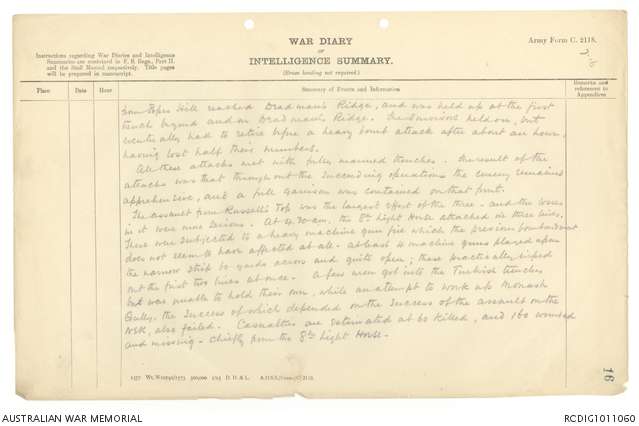 WAR DIARY
or
INTELLIGENCE SUMMARY.
(Erase heading not required.)
Army Form C. 2118.
Instructions regarding War Diaries and Intelligence
Summaries are contained in F. S. Regs., Part II.
and the Staff Manual respectively. Title pages
will be prepared in manuscript.
Place Date Hour Summary of Events and Information Remarks and references to Appendices
from Popes Hill reached Dead man's Ridge, and was held up at the first
trench beyond and on Dead man's Ridge. The survivors held on, but
eventually had to retire before a heavy bomb attack after about an hour,
having lost half their numbers.
All these attacks met with fully manned trenches. The result of the
attacks was that throughout the succeeding operations the enemy remained
apprehensive, and a full garrison was contained on that front.
The assault from Russell's Top was the largest effort of the three - and the losses
in it were more serious. At 4.30 am. the 8th Light Horse attacked in three lines.
These were subjected to a heavy machine gun fire which the previous bombardment
does not seem to have affected at all. At least 4 machine guns played upon
the narrow strip 60 yards across and quite open; these practically wiped
out the first two lines at once. A few men got into the Turkish trenches
but were unable to hold their own, while an attempt to work up Monash
Gully, the success of which depended on the success of the assault on the
NEK, also failed. Casualties are estimated at 60 killed, and 160 wounded
and missing - chiefly from the 8th Light Horse.
16
AUSTRALIAN WAR MEMORIAL
RCDIG1011060